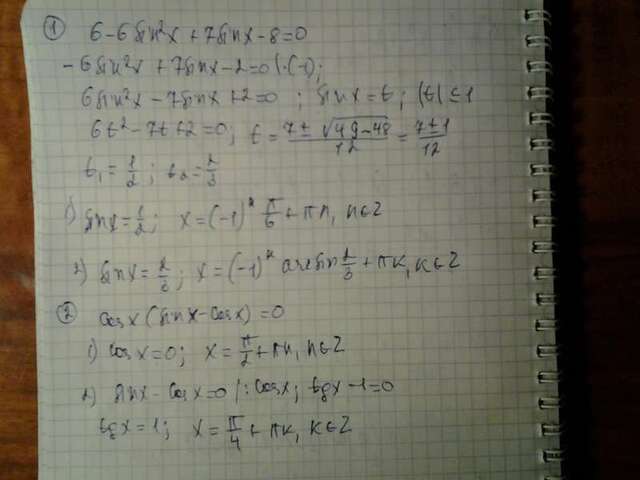 ① 6-6sin²x+7sinx-8=0
-6sin²x+7sinx-2=0|·(-1);
6sin²x-7sinx+2=0; sinx=t; |t|≤1
6t²-7t+2=0; t=(7±√(49-48))/12=(7±1)/12
t₁=1/2; t₂=2/3
1) sinx=1/2; x=(-1)ⁿ π/6+πn, n∈Z
2) sinx=2/3; x=(-1)ᵏ arcsin 2/3+πk, k∈Z
② cosx(sinx-cosx)=0
1) cosx=0; x=π/2+πn, n∈Z
2) sinx-cosx=0|:cosx; tgx-1=0
tgx=1; x=π/4+πk, k∈Z